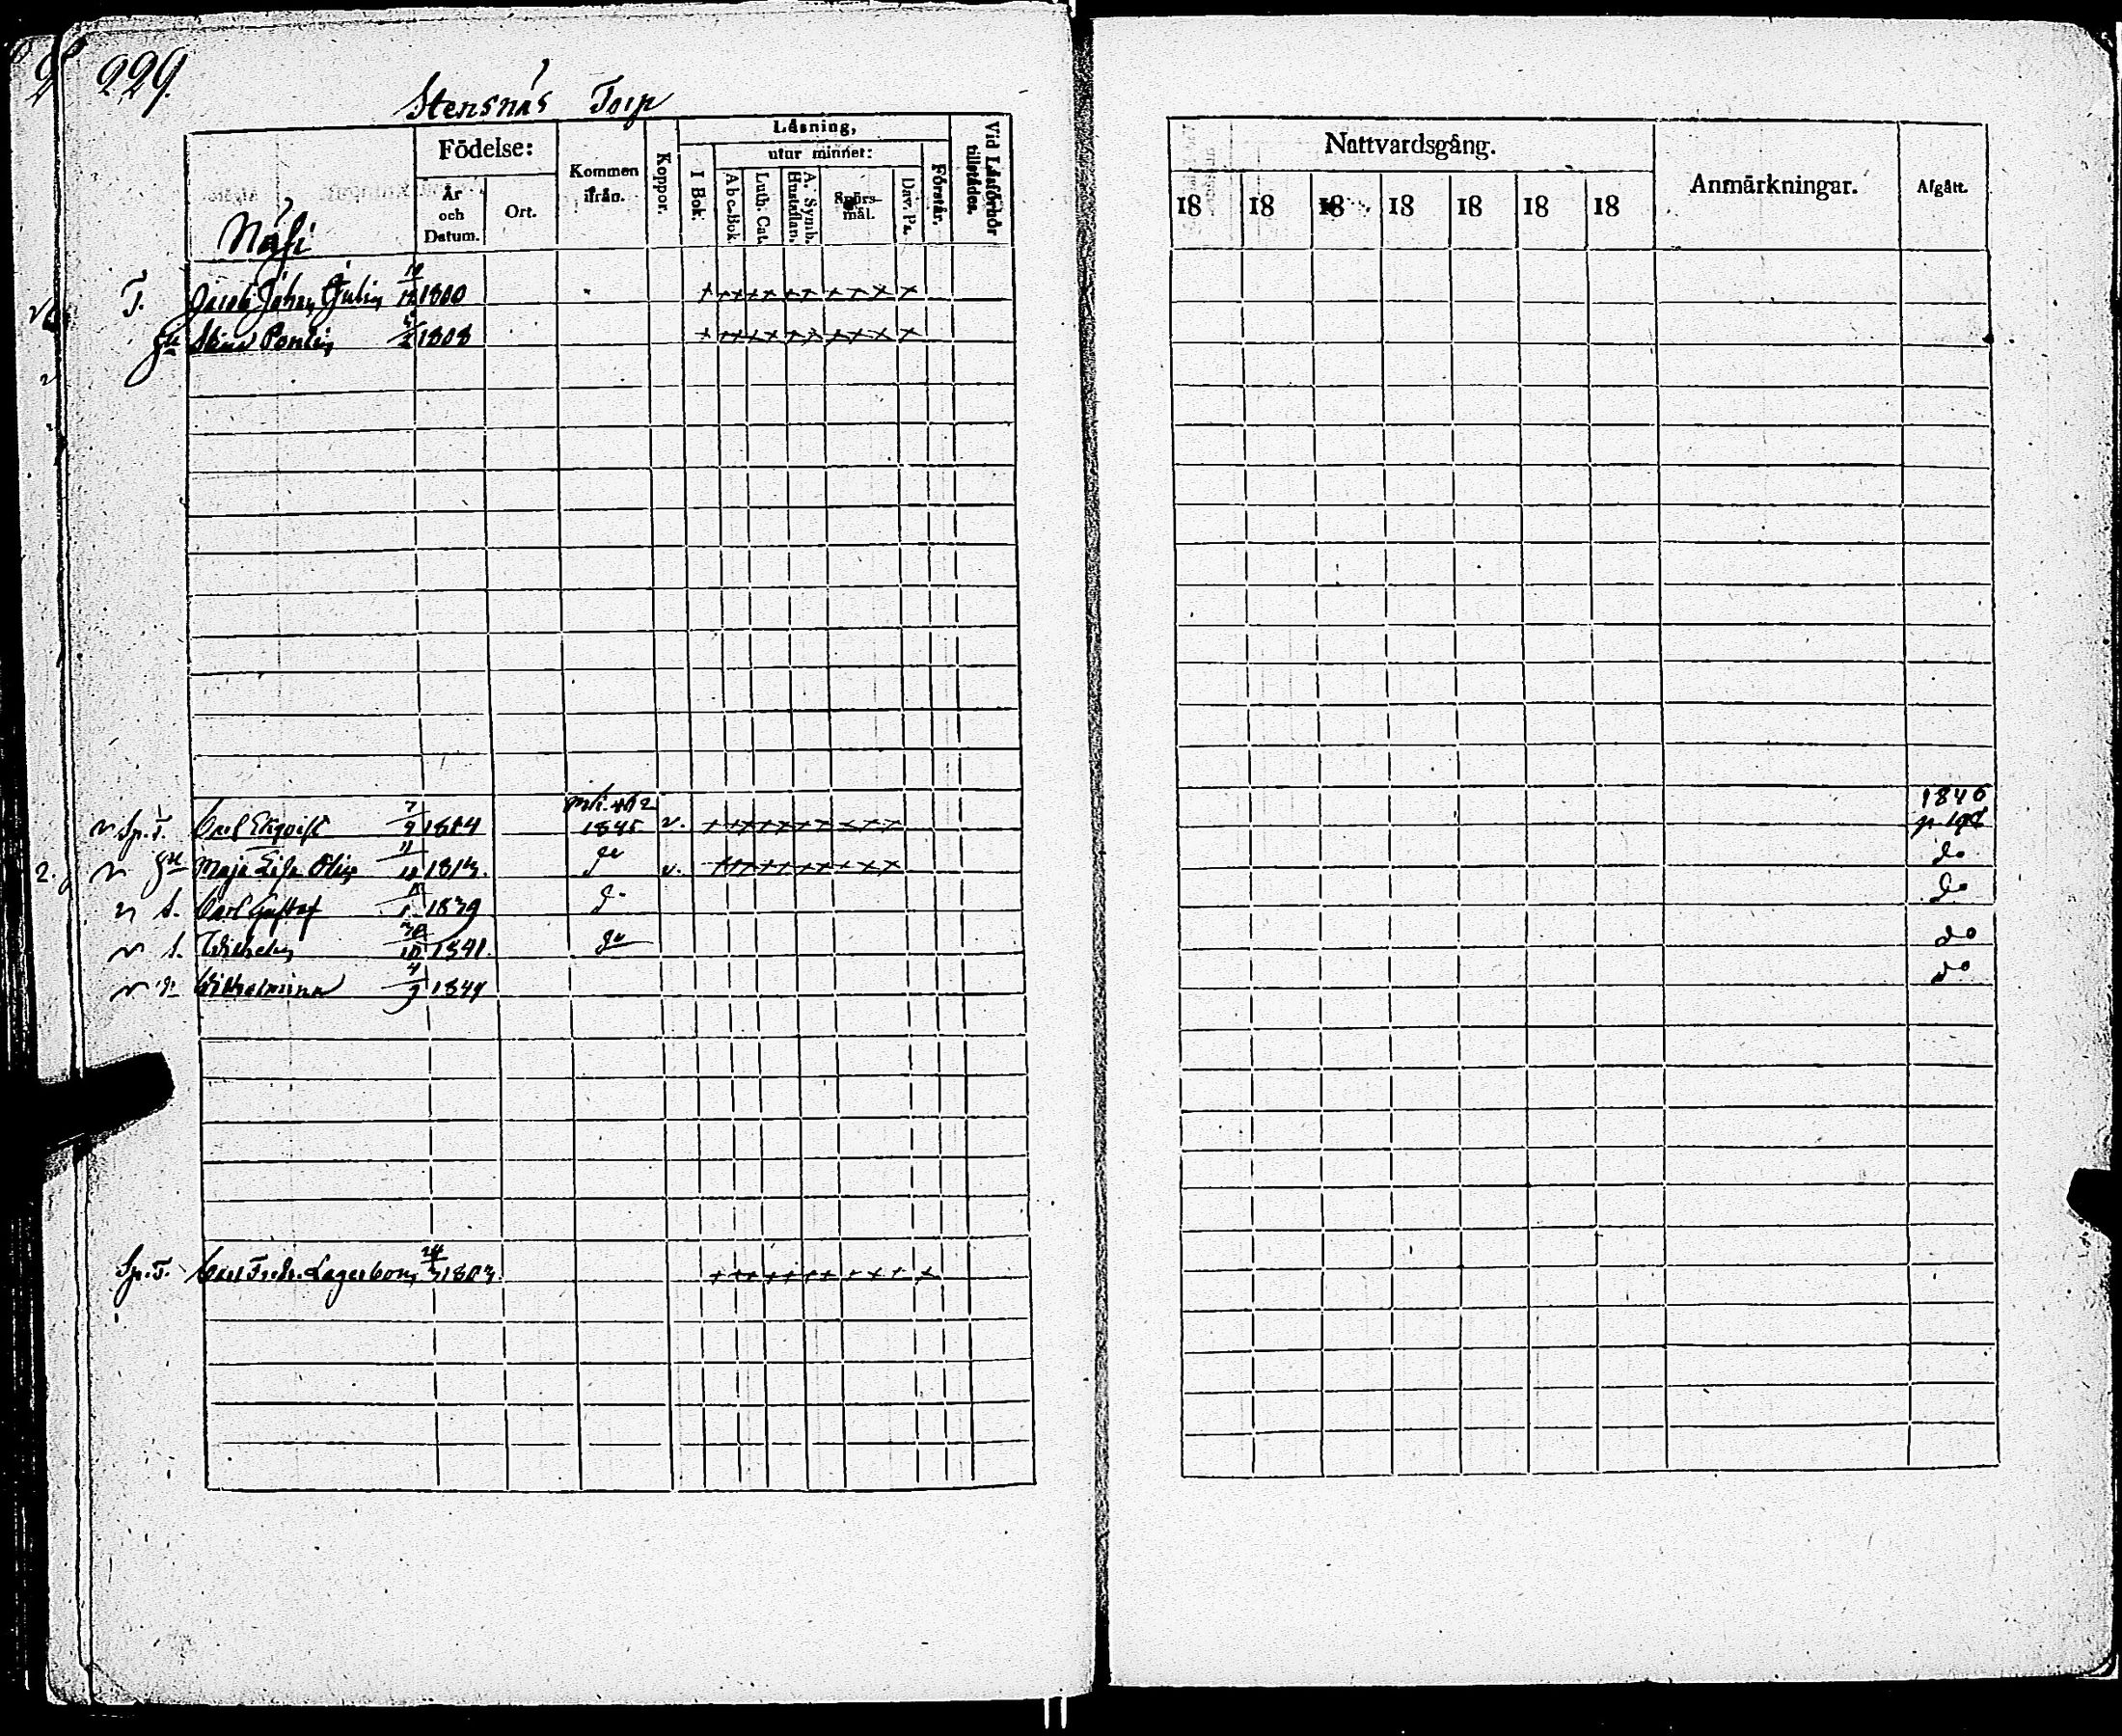 229.
Stensnäs Torp
Födelse:
År och Datum.
Ort.
Kommen ifrån.
Koppor.
Läsning,
utur minnet:
I Bok.
Abc-Bok.
Luth. Cat.
A. Symb. Hustaflan.
Spörs-mål.
Dav. Ps.
Förstår.
Vid Läsförhör tillstädes.
Näsi
T. Jacob Johan Julin 1800
hu Stina Pentin 1808
v Sp. T. Carl Ekqvist 7/9 1814 1845 v.
v hu Maja Lisa Olin 11/12 1813. do v.
v s. Carl Gustaf 1839 do
v s. Wilhelm 30/10 1841. do
v d. Wilhelmina 4/9 1844
Sp. T. Carl Fredr. Lagerbom 24/3 1803.
Nattvardsgång.
18 18 18 18 18 18 18
Anmärkningar.
Afgått.
1846
p. 198
do
do
do
do